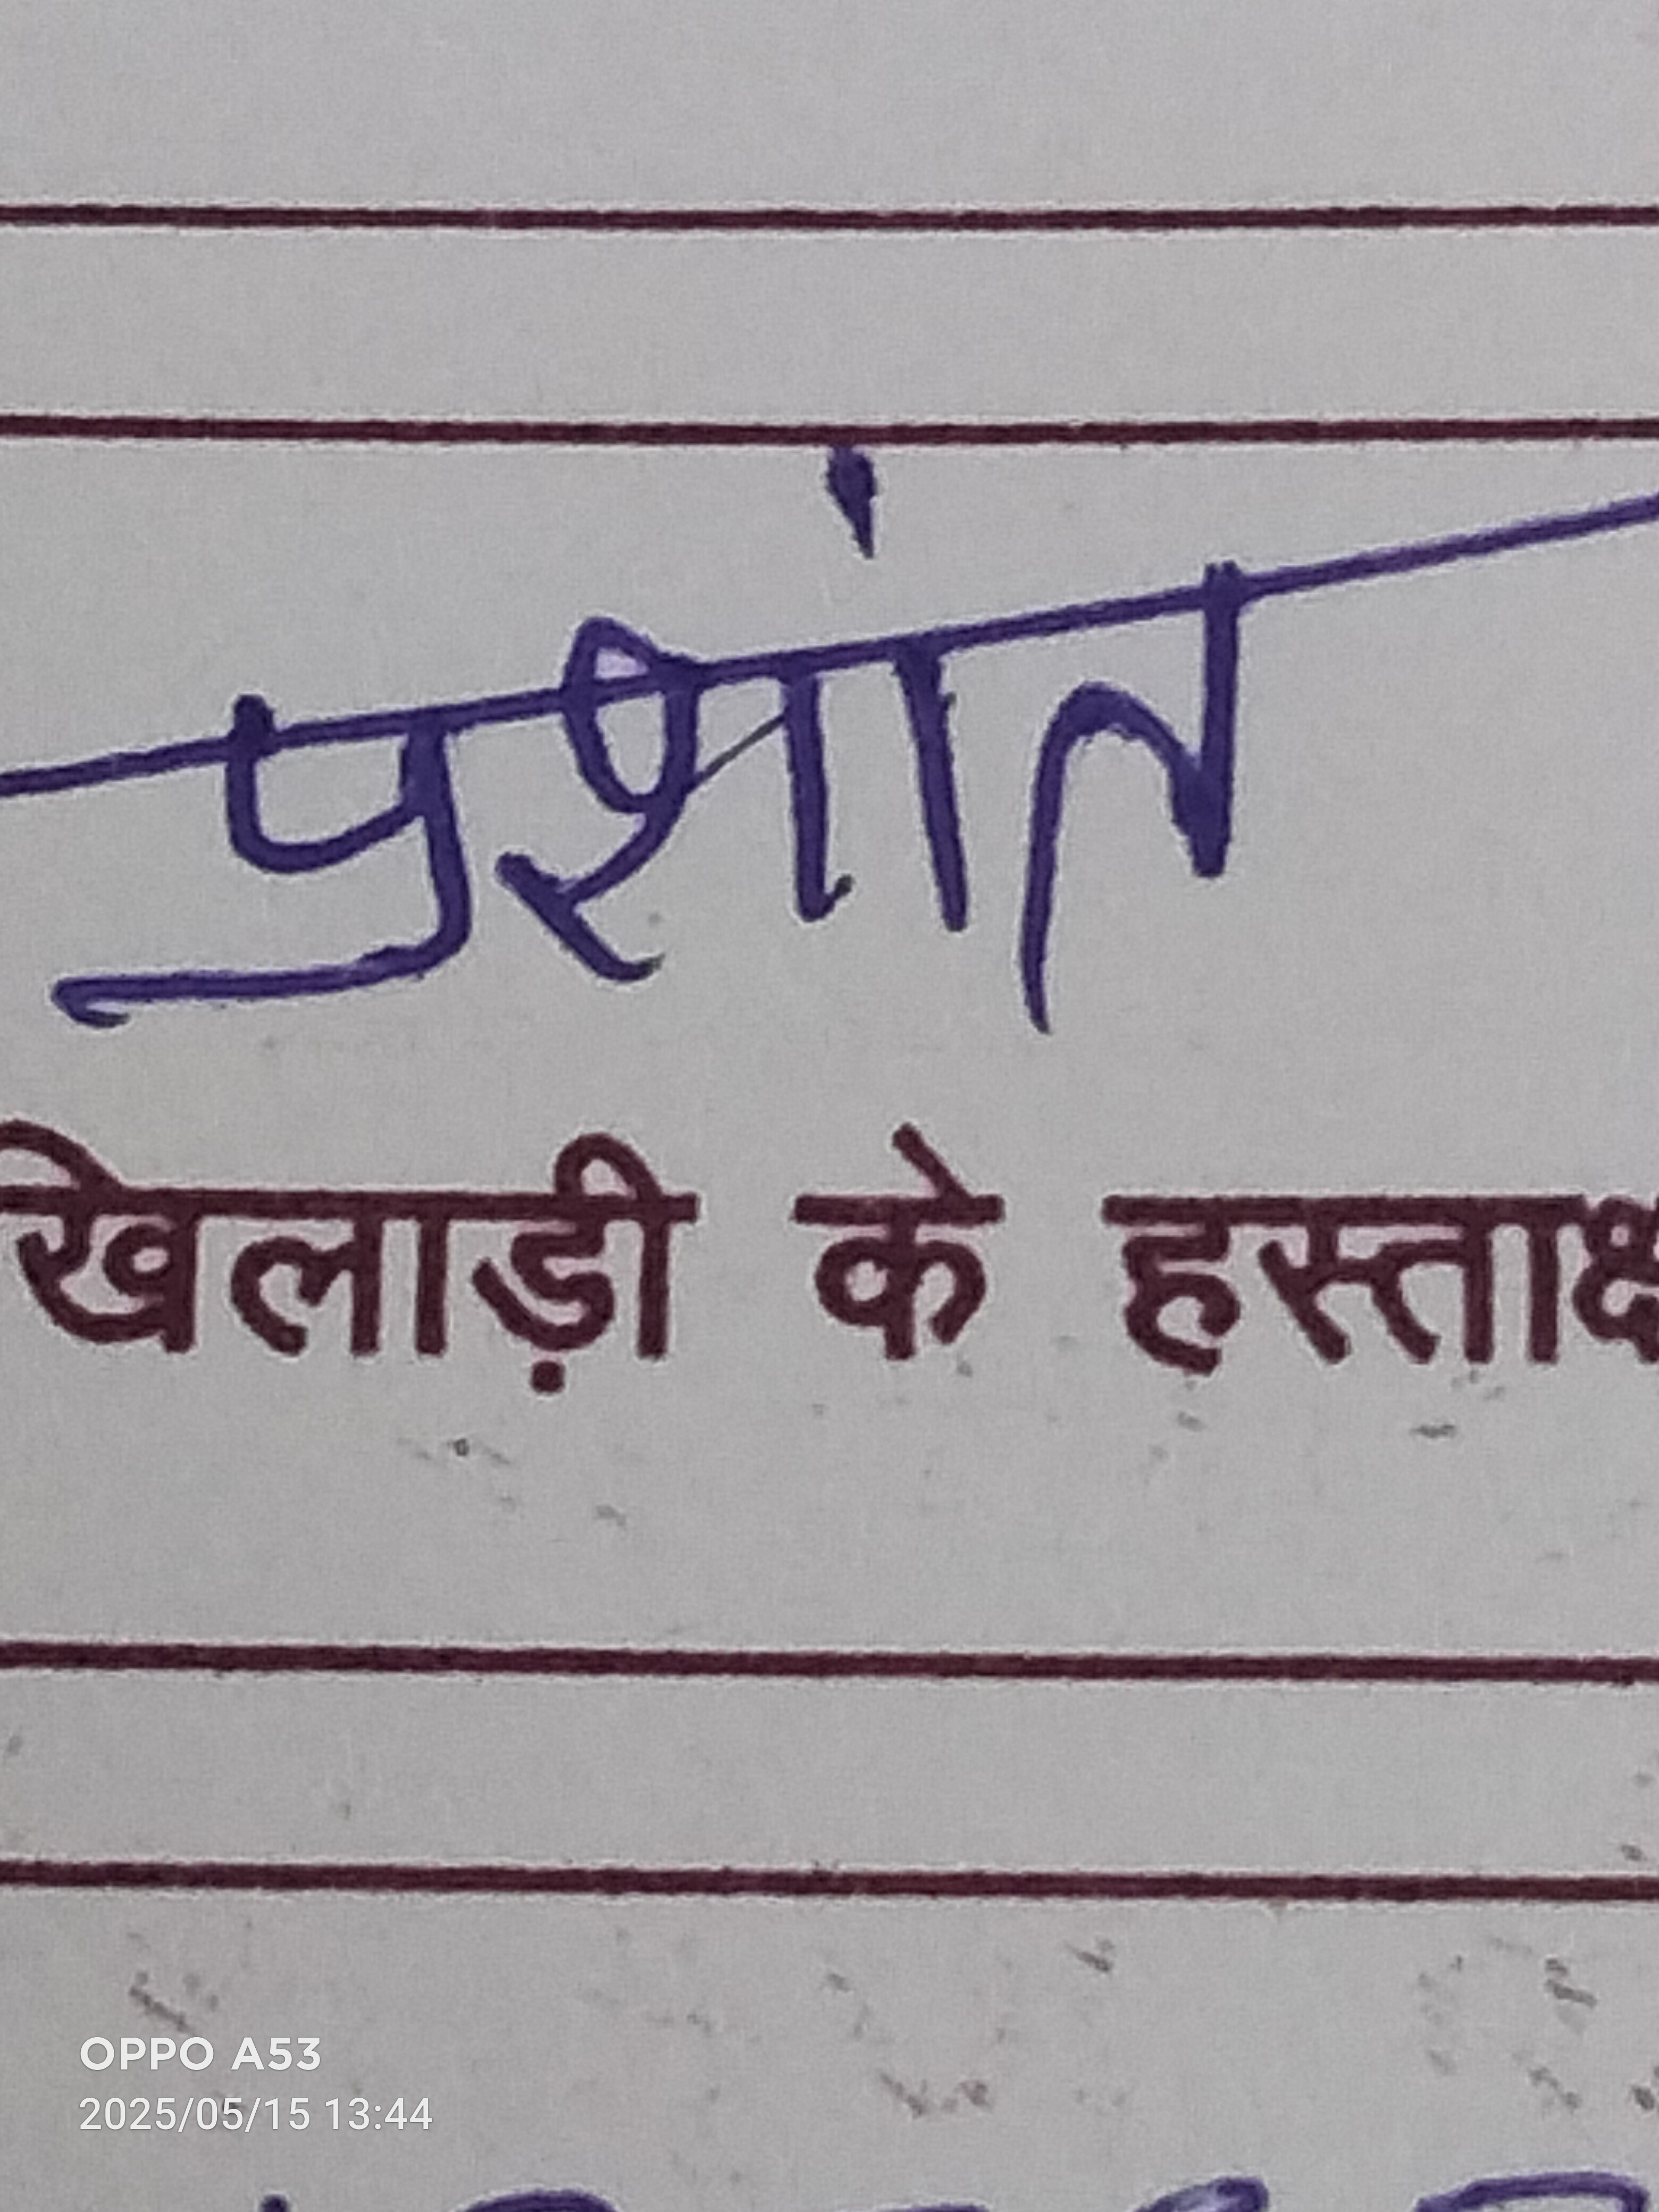 प्रशांत
खिलाड़ी के हस्ताक्ष
OPPO A53
2025/05/15 13:44